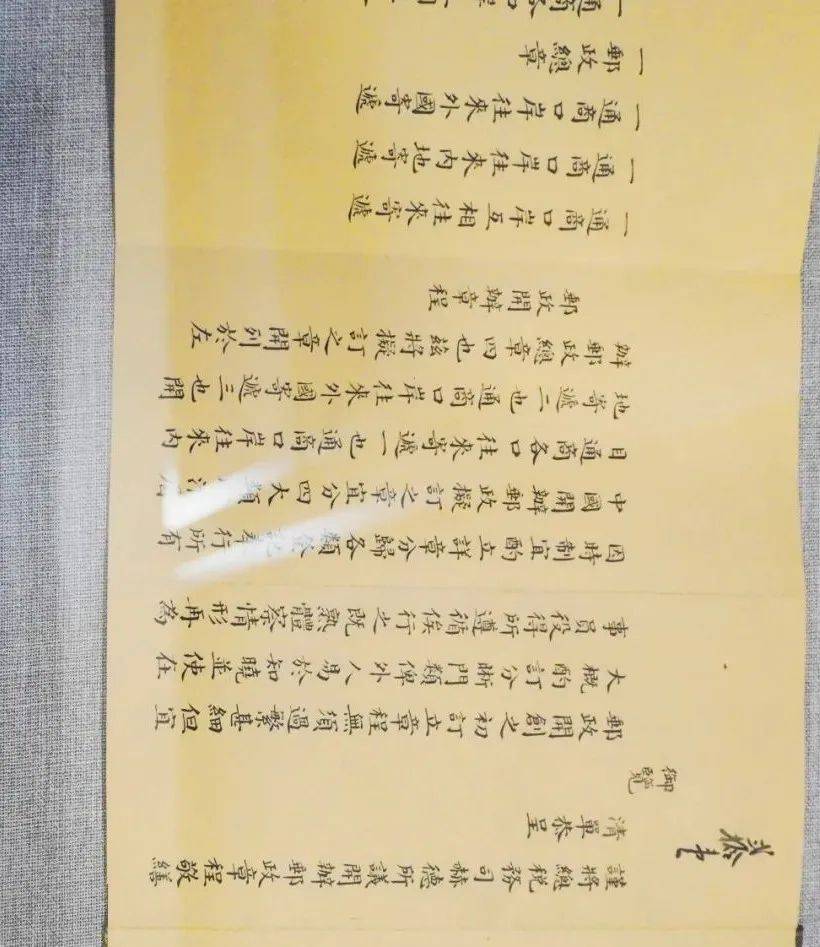 謹將總稅務司赫德所議開辦郵政章程敬繕
清單恭呈
御覽
郵政開創之初訂立章程無須過繁甚細但宜
大概酌訂分晰門類俾外人易於知曉並使在
事員役得所遵循俟行之既熟體察情形再為
因時制宜酌立詳章分歸各類行所有
中國開辦郵政擬訂之章宜分四大類
目通商各口往來寄遞一也通商口岸往來內
地寄遞二也通商口岸往來外國寄遞三也開
辦郵政總章四也茲將擬訂之章開列於左
郵政開辦章程
一通商口岸互相往來寄遞
一通商口岸往來內地寄遞
一通商口岸往來外國寄遞
一郵政總章
一通商各口